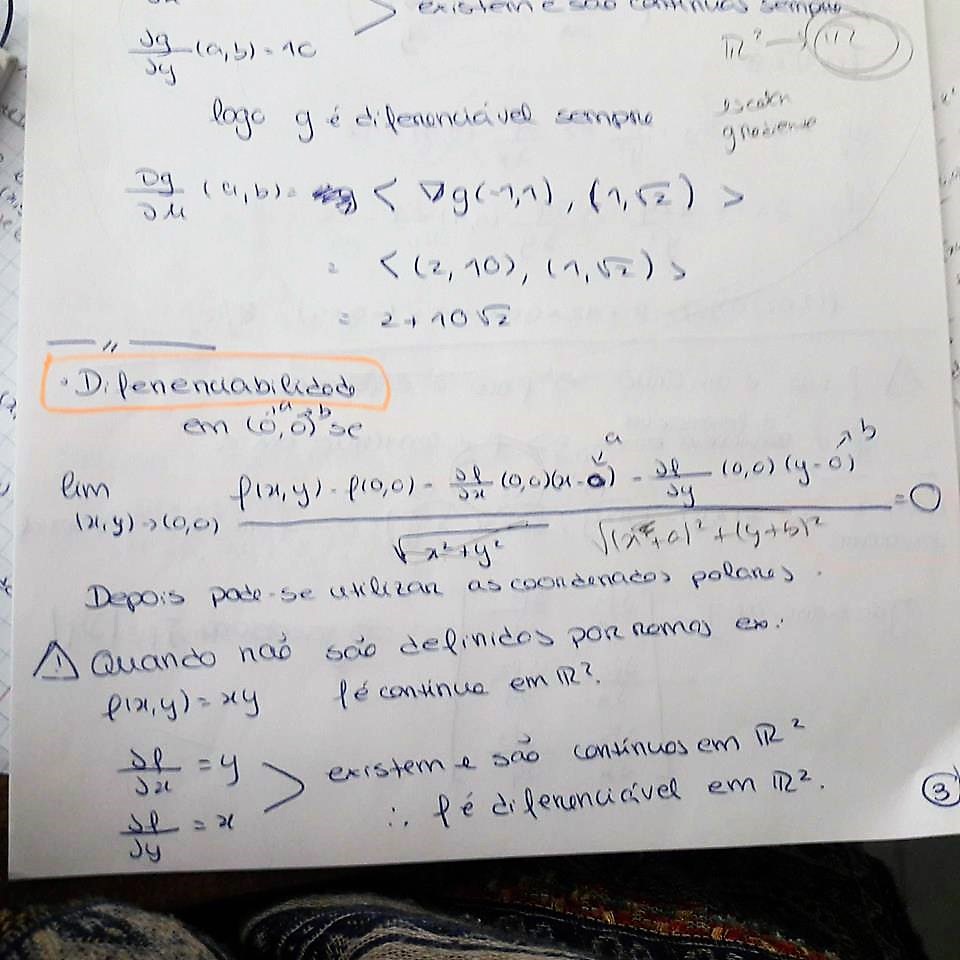 existem e são contínuas sempre
∂g/∂y (a,b) = 10
ℝ² → ℝ
logo g é diferenciável sempre
escalar
gradiente
∂g/∂u (a,b) = < ∇g(-1,1), (1,√2) >
= < (2,10), (1,√2) >
= 2+10√2
— // —
• Diferenciabilidade
em (0,0) se
a b
a b
lim (x,y)→(0,0) f(x,y) - f(0,0) - ∂f/∂x (0,0)(x-0) - ∂f/∂y (0,0)(y-0) / √x²+y² = 0
√(x+a)²+(y+b)²
Depois pode-se utilizar as coordenadas polares.
⚠ Quando não são definidos por ramos ex.:
f(x,y) = xy f é contínua em ℝ².
∂f/∂x = y > existem e são contínuos em ℝ²
∂f/∂y = x ∴ f é diferenciável em ℝ².
3